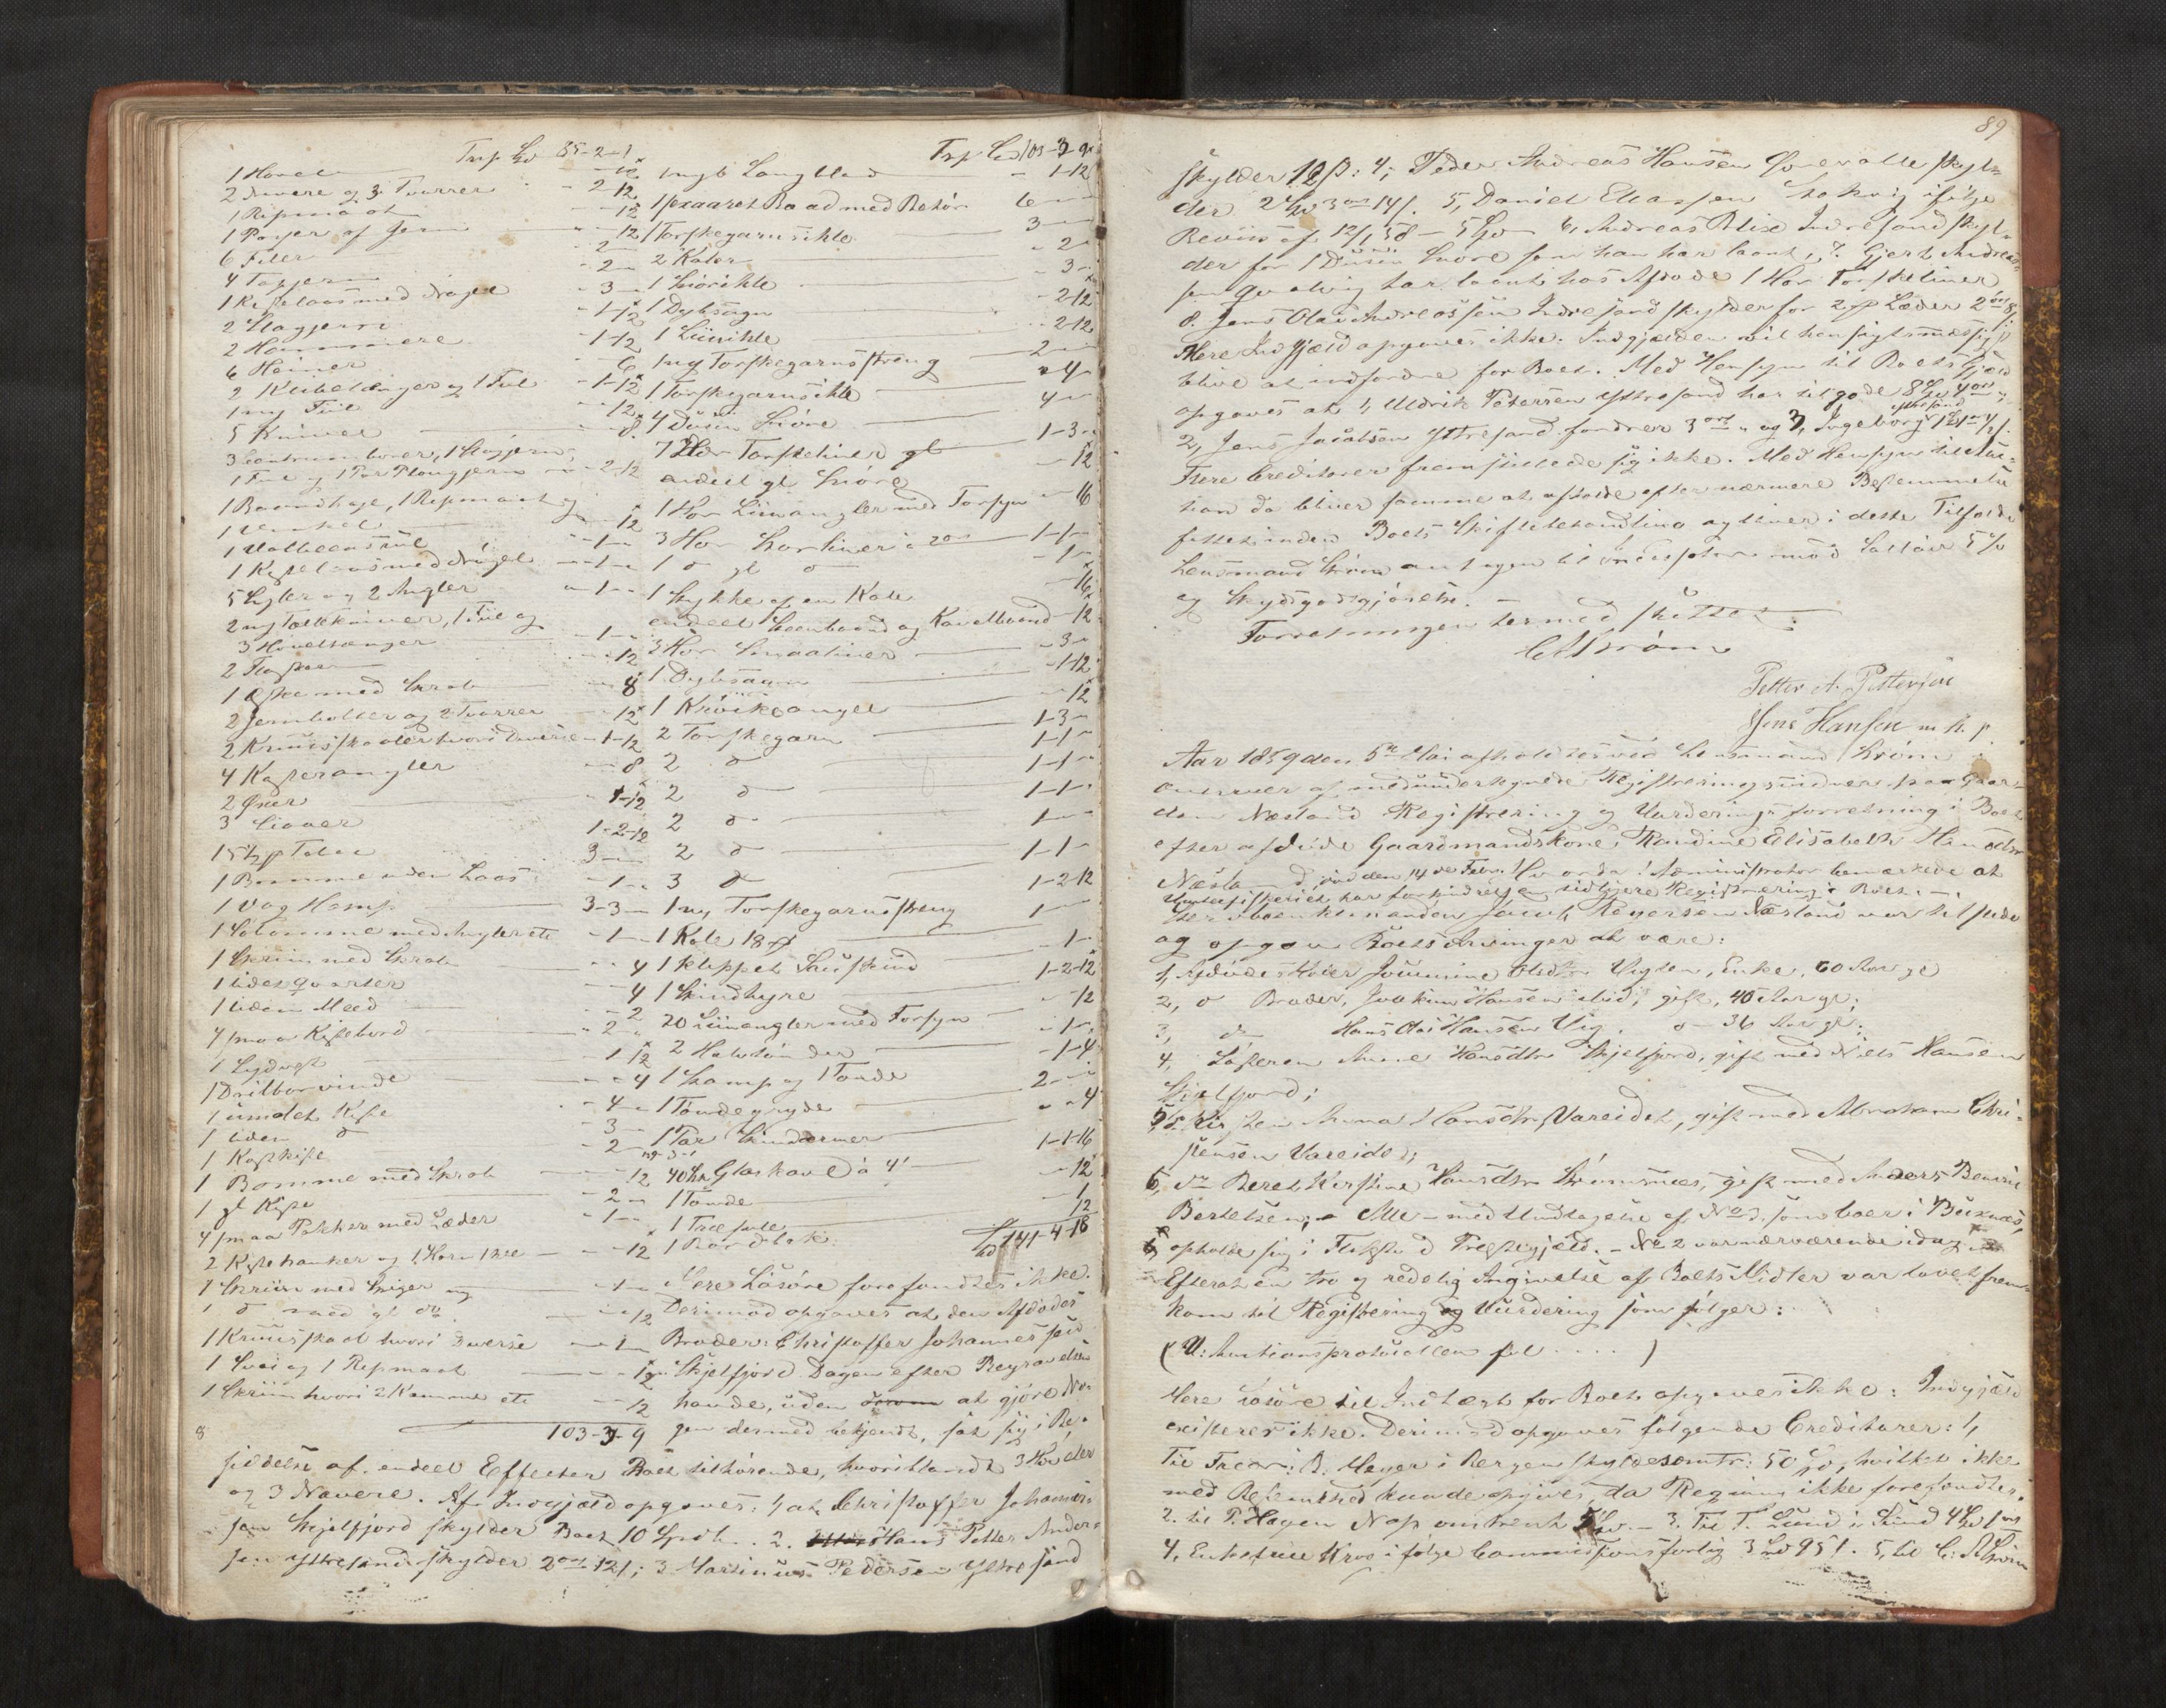 Trsp Spd 85-2-1
1 Høvel - 12
2 Navere og 3 Tvarrer - 2-12
1 Repmaat - 12
1 Passer af Jern - 12
6 Filer - 2 -
4 Tapjern - 2 -
1 Kistelaas med Nøgel - 3 -
2 Slagjern - 1-12
2 Hammere - 1-12
6 Heiner - 6
2 Knibetænger og 1 Fiil - 1-12
1 ny Fiil - 12
5 Knive - 8
3 Centrumborer, 1 Slagjern,
1 Fiil og 1 Par Plougjern - 2-12
1 Baandhage, 1 Repmaat og
1 Vinkel - 12
1 Valbeensriil - 1 -
1 Kistelaas med Nøgel - 1 -
5 Syler og 2 Angler - 1 -
2 ny Tællekniver, 1 Fiil og
3 Høveltænger - 1 -
2 Flasker - 12
1 Æske med Skrab - 8
2 Jernbolter og 2 Tvarrer - 12
2 Kruusskaaler hvori Diverse - 1-12
4 Kasterangler - 8
2 Øxer - 1-12
3 Liaaer 1-2-12
15 Tolee 3 -
1 Bomme uden Laas - 1 -
1 Vog Hamp 3-3 -
1 Lotomme med Angler etc - 1 -
1 Skriin med Skrab - 4
1 lidet Qvarter - 4
1 liden Meed - 2
4 smaa Kistebord - 2 -
1 Sydvest - 1-12
1 Drilborvinde - 4
1 umalet Kiste - 4 -
1 liden do - 3 -
1 Kastkiste - 2 -
1 Bomme med Skrab - 12
1 gl Kiste - 2 -
4 smaa Pakker med Læder - 1 -
2 Kistehanker og 1 Horn - 12
1 Skriin med Spiger og - 1 -
1 do med gl do - 12
1 Kruusskaal hvori Diverse - 1 -
1 Svai og 1 Repmaat - 12
1 Skriin hvori 2 Kamme etc - 12
103-3-9
Trsp Spd 103-3-9
1 ny Langblad - 1-12
1 sexaaret Baad med Behør 6 -
1 Torskegarnsihle 3 -
2 Kabler - 2 -
1 Snørihle - 3 -
1 Dybsagn - 2-12
1 Liinihle - 2-12
1 ny Torskegarnsstreng 2 -
1 Torskegarnsihle - 4 -
4 Dusin Snøre 4 -
7 Hdr Torskeliner gl 1-3 -
endeel gl Snøre - 12
1 Hdr Liinangler med Forsyn - 16
3 Hdr Storliner 1-1 -
1 do gl do - 1 -
1 Stykke af en Kabel - 16
endeel Steenbaand og Kavelbaand - 12
3 Hdr Smaaliner - 3 -
1 Dybsagn - 1-12
1 Kveiteangel - 12
2 Torskegarn 1-3 -
2 do 1-1 -
2 do 1-1 -
2 do 1-1 -
2 do 1 -
3 do 1-1 -
1 ny Torskegarnsstreng 1-2-12
1 Kabel 18 1 -
1 klippet Saueskind - 1 -
1 Skindhyre 1-2-12
20 Liinangler med Forsyn - 12
2 Halvtønder - 1 -
1 Stamp og 1 Tønde - 1-4
1 Tøndegryde 2 -
1 Par Skindærmer - 4
40 Stk Glaskavl à 4/ 1-1-16
1 Tønde - 12
1 Træfule - 1
1 Bordblok 12
Spd 141-4-18
Mere Løsøre forefandtes ikke.
Derimod opgaves at den Afdødes
Broder: Christoffer Johannessen
Skjelfjord Dagen efter Begravelsen
havde, uden at gjøre No-
gen dermed bekjendt, sat sig i Be-
siddelse af endeel Effecter Boet tilhørende, hvoriblandt 3 Kabler
og 3 Navere. Af Indgjæld opgaves: 1, at Christoffer Johannes-
sen Skjelfjord skylder Boet 10 Spdl. 2. Hans Petter Ander-
sen Ystresand skylder 2 ort 12/; 3 Martinus Pedersen Ystresand
89
skylder 12 ß: 4, Peder Andreas Hansen Qvævalle skyl-
der 2 Spd 3 ort 14/. 5, Daniel Eliassen ifølge
Beviis af 12/1 58 - 5 Spd - 6, Andreas Indresand skyl-
der for 1 Dusin Snøre som han har laant, 7, Gjert Andreas-
sen Qvalvig har laant hos Afdøde 1 Hdr Torskeliner
8. Jens Olai Andreassen Indresand skylder for 2 Læder 2 ort 8/.
Mere Indgjæld opgaves ikke. Indgjælden vil hensigtsmæssigst
blive at indfordre for Boet. Med Hensyn til Boets Gjæld
opgaves at 1, Uldrik Petersen Ystresand har tilgode 8 Spd 4 ort,
2, Jens Jacobsen Ystresand fordrer 3 ort - og 3, Ingeborg Ystresand
Flere Creditorer fremstillede sig ikke. Med Hensyn til Auc-
tion da bliver samme at afholde efter nærmere Bestemmelse
Boets Skiftebehandling og bliver i dette Tilfælde
Lensmand Strøm antagen til Incassator mod Sallair 5 %
og Skydsgodtgjørelse. -
Forretningen dermed sluttet.
CAStrøm
Petter A. Pettersen
Jens Hansen m. P.
Aar 1859 den 5te Mai afholdtes ved Lensmand Strøm
overvær af medunderskrevne Registreringsvidner paa Gaar-
den Næsland Registrering og Vurderingsforretning i Boet
efter afdøde Gaardmandskone, Randine Elisabeth Hansdtr
Næsland, død den 14de Febr. Hvorda! Administrator bemærkede at
Vinterfiskeriet har forhindret en tidligere Registrering i Boet. -
Enkemanden Jacob Regersen Næsland var tilstede
og opgav Boets Arvinger at være:
1, Afdødes Moder Jonnine Olsdtr Vigten, Enke, 60 Aar gl
2, do Broder, Joakim Hansen ibid, gift, 40 Aar gl;
3, do Hans Olai Hansen Vig, do 36 Aar gl;
4, Søsteren Anne Hansdtr Skjelfjord, gift med Niels Hansen
Skjelfjord;
5, do Kirsten Anna Hansdtr, Vareidet, gift med Abraham Chri-
stensen Vareidet;
6, do Beret Kirstine Hansdtr Strømsnæs, gift med Anders
Bertelsen; - Alle - med Undtagelse af No 3 som boer i Buxnæs,
opholde sig i Flakstad Præstegjeld. - No 2 var nærværende idag.
Efterat en tro og redelig Angivelse af Boets Midler var lovet frem-
kom til Registrering og Vurdering som følger:
(V: Auctionsprotocollen fol .... )
Mere Løsøre til Indtægt for Boet opgaves ikke: Indgjæld
existerer ikke. Derimod opgaves følgende Creditorer: 1,
Til D. Meyer i Bergen skyldes omtr: 50 Spd, hvilket ikke
med Bestemthed kunde opgives, da Regning ikke forefandtes.
2. til P. Hagen Nap omtrent 5 Spd. - 3. Til T. Lund i Sund 4 Spd 1 ort
4, Enkefrue Krog ifølge Commissionsforlig 3 Spd 95/. 5, til C. A Strøm